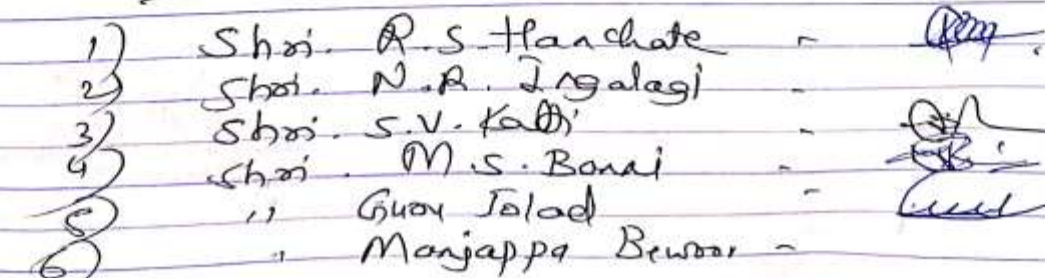 1) Shri. R.S. Hanchate -
2) Shri. N.R. Ingalagi -
3) Shri. S.V. Katti -
4) Shri. M.S. Banai -
5) ,, Guru Jolad -
6) ,, Manjappa Bewoor -